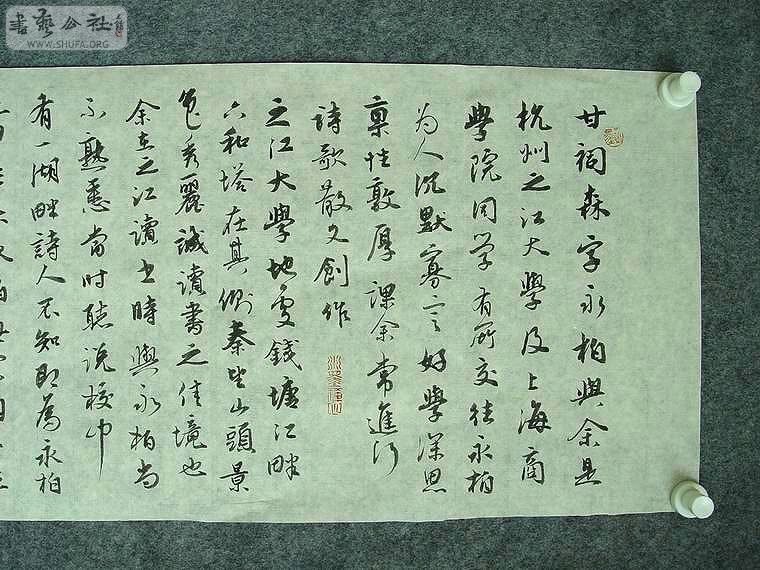 甘祠森字永柏與余是
杭州之江大學及上海商
學院同学有所交往永柏
为人沉默寡言好學深思
禀性敦厚課余常進行
詩歌散文創作
之江大學地处錢塘江畔
六和塔在其側秦望山頭景
色秀麗誠讀書之佳境也
余在之江讀书時與永柏尚
不熟悉當时聽说校中
有一湖畔詩人不知即為永柏
書藝公社
WWW.SHUFA.ORG